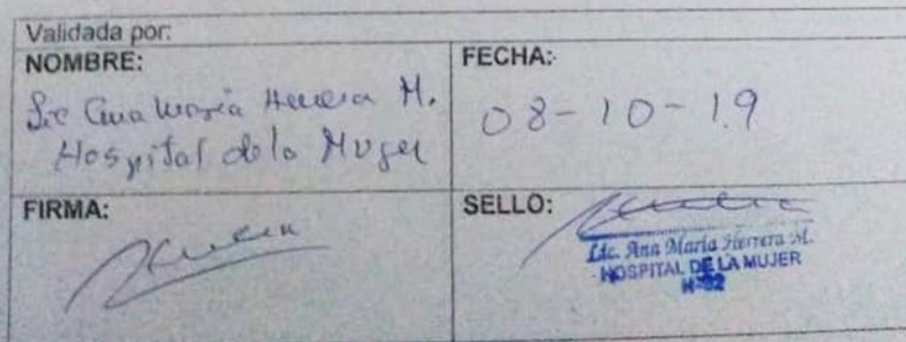 Validada por:
NOMBRE:
Lic Ana María Herrera M.
Hospital de la Mujer
FECHA:
08-10-19
FIRMA:
Herrera
SELLO:
Herrera
Lic. Ana María Herrera M.
HOSPITAL DE LA MUJER